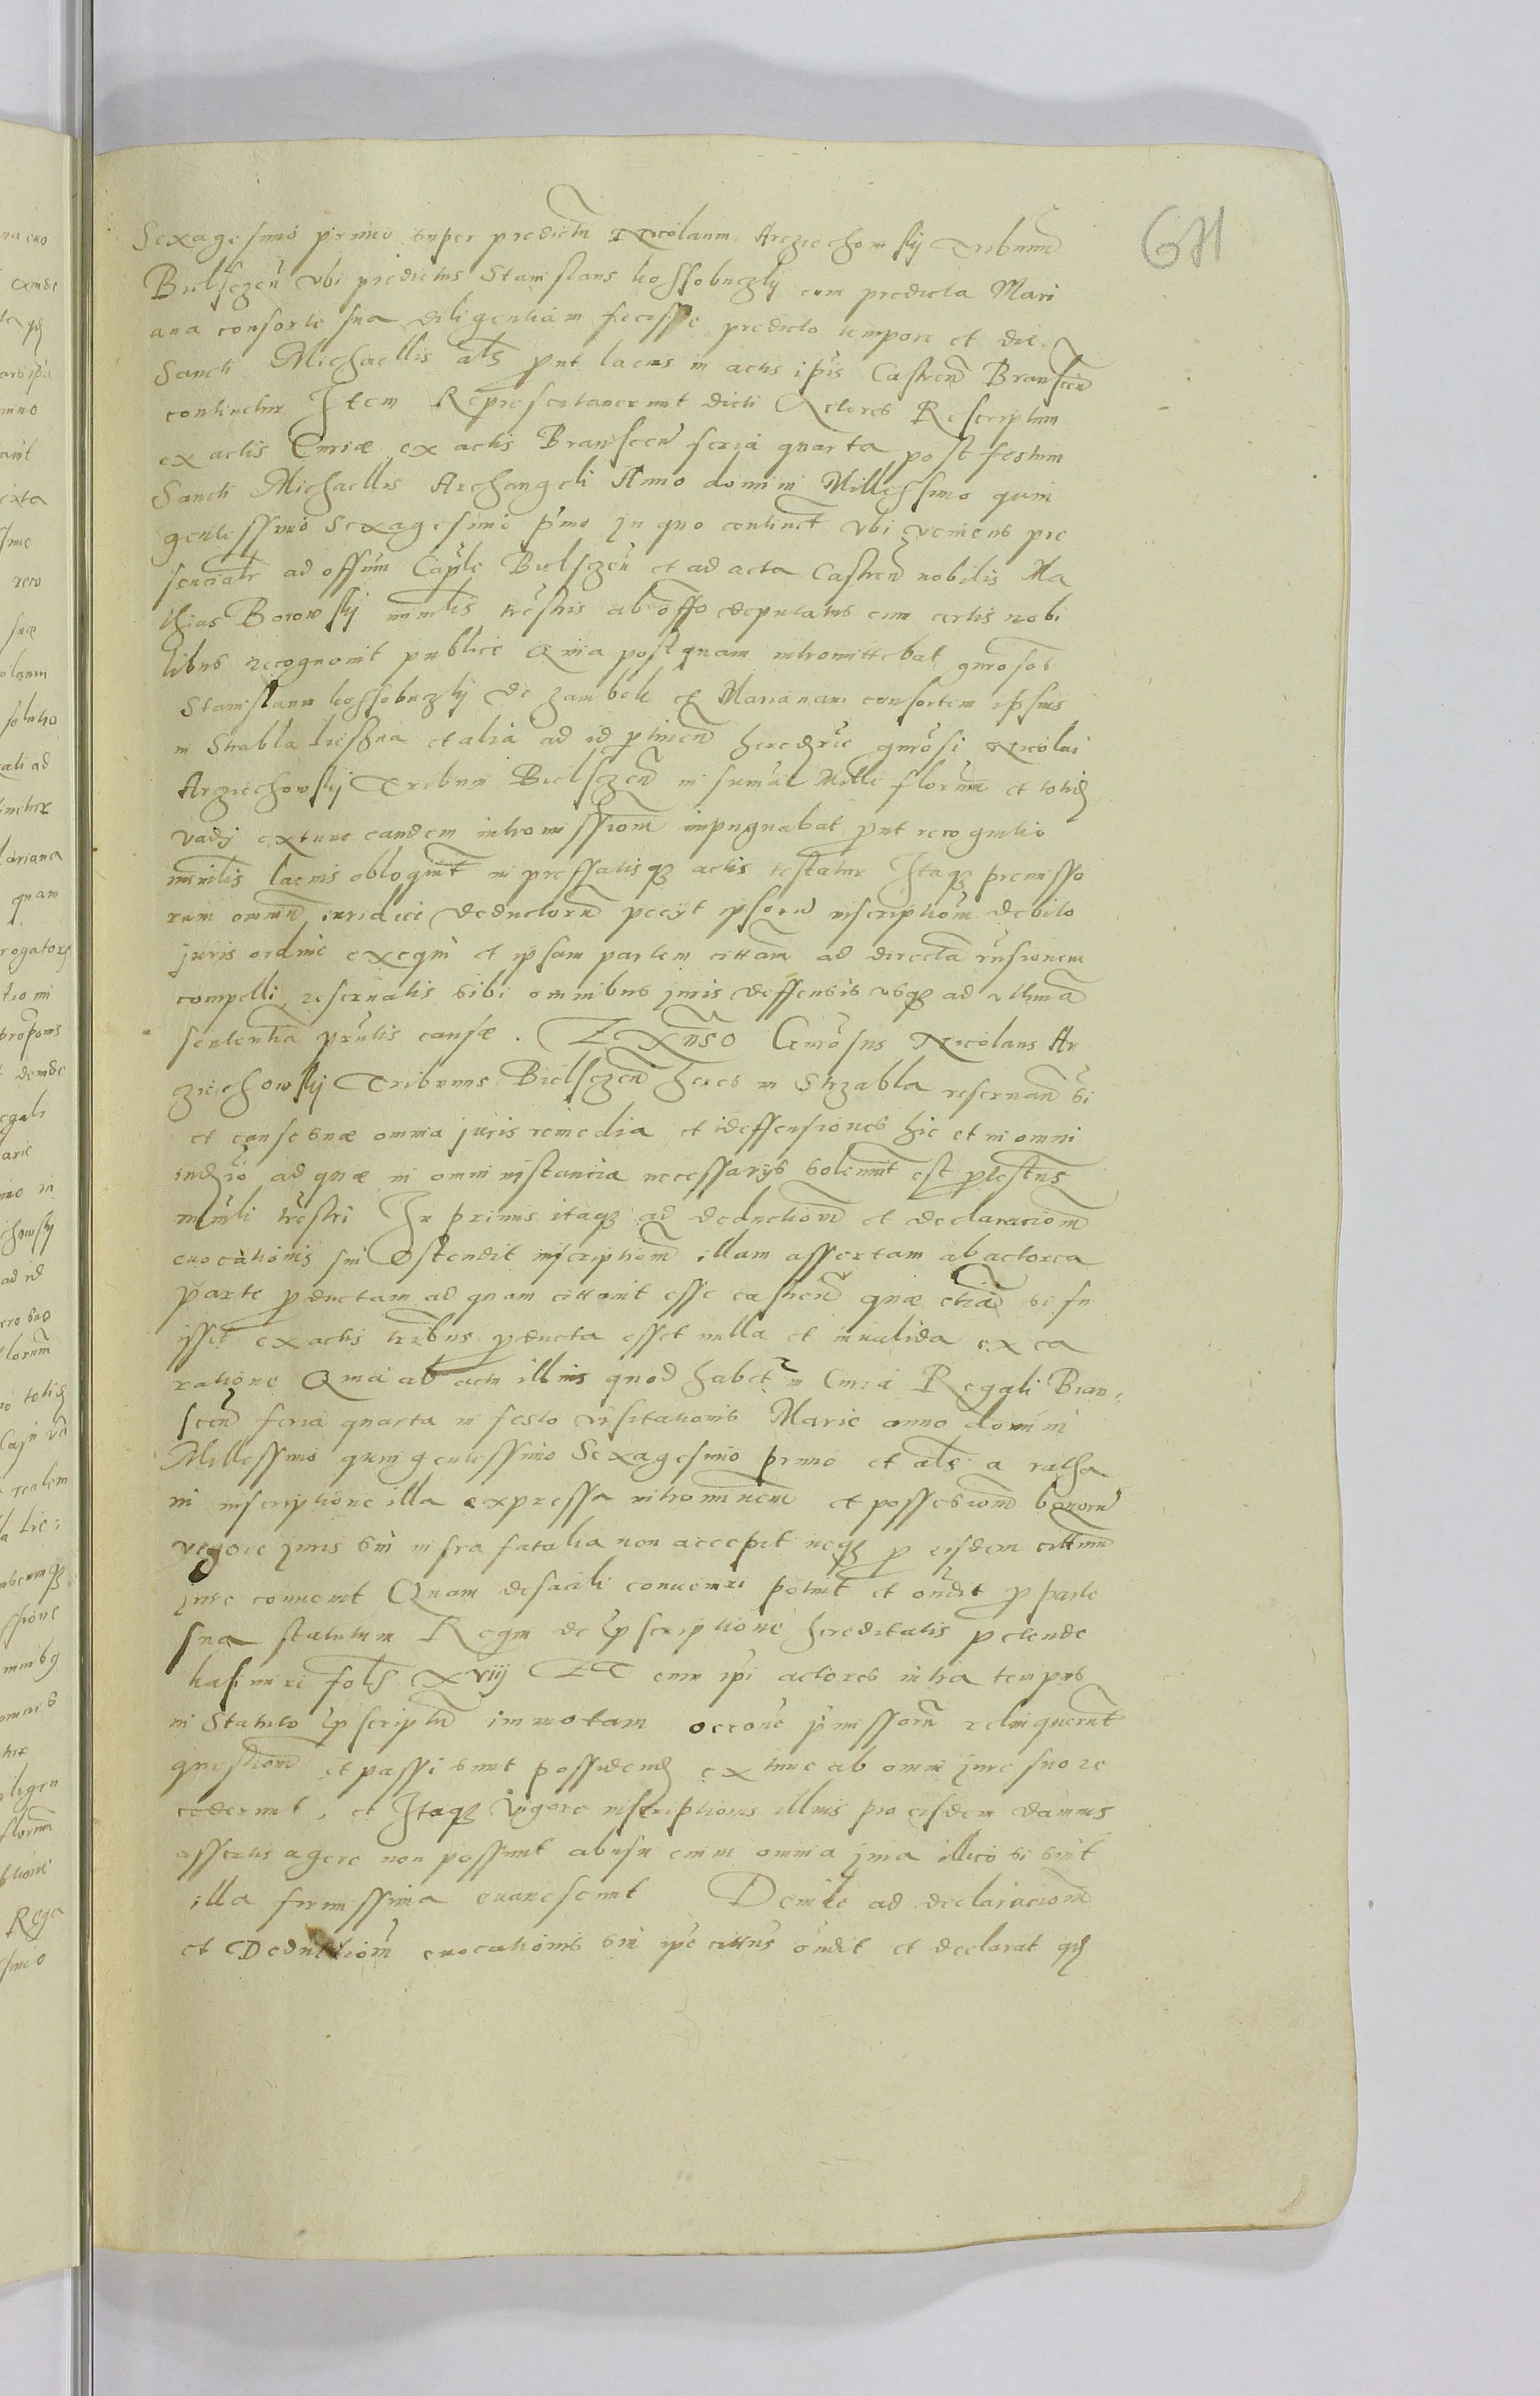 641
Sexagesimo primo super predictu Nicolaum Arczechowsky Tribunu
Bielsczen vbi predictus Stanislaus kossobuczky cum predicta Mari
ana consorte sua diligentiam fecisse predicto tempore et die
Sancti Michaellis als put lacius in actis ipsis Castren Branscen
continetur Item Representauerunt dicti Actores Rescriptum
ex actis Curiæ ex actis Branscen feria quarta post festum
Sancti Michaellis Archangeli Anno domini Millessimo quin
gentessimo Sexagesimo pmo in quo continet vbi veniens pre
sencialr ad offium Caple Bielsczen et ad acta Castren nobilis Ma
thias Borowsky mnrlis trestris ab offo deputatus cum certis nobi
libus recognouit publice Quia postquam intromittebat gnrosos
Stanislaum kossobuczky de zambok et Marianam consortem ipsius
in Strabla liessna et alia ad id ptinen hereditrie gnrosi Nicolai
Arczechowsky Tribuni Bielsczen in summa Mille florenu et totid
vadij extunc eandem intromissiom inpugnabat put recognitio
mnrilis lacius obloquit in preffatisq actis testatur Itaq premisso
rum omniu iuridice deductoru pecyt ipsoru inscriptiom debito
juris ordine exequi et ipsam partem cittam ad directa rnsionem
compelli reseruatis sibi omnibus juris deffensis vsq ad vltima
sententia pntis causæ . Gnrosus Nicolaus Ar
czechowsky Tribunus Bielsczen heres in Strzabla reseruan si
et cause suæ omnia juris remedia et deffensiones hic et in omni
iudicio ad quæ in omni instancia necessarijs solenit est ptestus
mnrli trestri In primis itaq ad deductiom et declaraciom
euocationis sui Ostendit inscriptiom illam assertam ab actorea
parte pductam ad quam cittauit esse castren quæ etia si fu
isset ex actis tribus pducta esset nulla et inualida ex ea
ratione Quia ab actu illius quod habet in Curia Regali Bran
scen feria quarta in festo visitationis Marie anno domini
Millessimo quingentessimo Sexagesimo primo et als a
in inscriptione illa expressa intromissiom et possessiom bonoru
vigore juris sui infra fatalia non accepit neq p eisdem cittum
jure conuenit Quam defacili conueniri potuit et ondit p parte
sua statutum Regni de pscriptione hereditatis petende
fol xviij cum ipi actores intra tempus
in Statuto pscriptu immotam occone pmissoru relinquerut
questiom et passi sunt possidend extunc ab omni jure suo re
cederunt, et Itaq vigore inscriptionis illius pro eisdem damnis
assertis agere non possunt abusu enim omnia jura illico si sint
illa firmissima euanescunt Deinde ad declaraciom
et Deductiom euocationis sui ipe cittus ondit et declarat qd